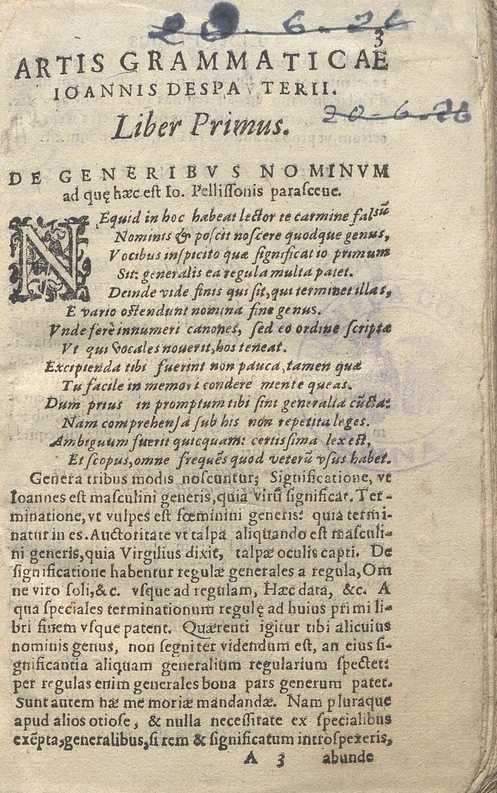 20.6.26
3
ARTIS GRAMMATICAE
IOANNIS DESPAVTERII.
20-6-26
Liber Primus.
DE GENERIBVS NOMINVM
ad quę hæc est Io. Pellissonis parasceue.
NEquid in hoc habeat lector te carmine falsũ
Nominis & poscit noscere quodque genus,
Vocibus inspicito quæ significatio primum
Sit: generalis ea regula multa patet.
Deinde vide finis qui sit, qui terminet illas,
E vario ostendunt nomina fine genus.
Vnde ferè innumeri canones, sed eo ordine scriptæ
Vt qui vocales nouerit, hos teneat.
Excipienda tibi fuerint non pauca, tamen quæ
Tu facile in memori condere mente queas.
Dum prius in promptum tibi sint generalia cũcta:
Nam comprehensa sub his non repetita leges.
Ambiguum fuerit quicquam: certissima lex est,
Et scopus, omne frequẽs quod veterũ vsus habet.
Genera tribus modis noscuntur; Significatione, vt
Ioannes est masculini generis, quia virũ significat. Ter-
minatione, vt vulpes est fœminini generis: quia termi-
natur in es. Auctoritate vt talpa aliquando est masculi-
ni generis, quia Virgilius dixit, talpæ oculis capti. De
significatione habentur regulæ generales a regula, Om
ne viro soli, &c. vsque ad regulam, Hæc data, &c. A
qua speciales terminationum regulę ad huius primi li-
bri finem vsque patent. Quærenti igitur tibi alicuius
nominis genus, non segniter videndum est, an eius si-
gnificantia aliquam generalium regularium spectet:
per regulas enim generales bona pars generum patet.
Sunt autem hæ memoriæ mandandæ. Nam pluraque
apud alios otiose, & nulla necessitate ex specialibus
excẽpta, generalibus, si rem & significatum introspexeris,
A 3 abunde